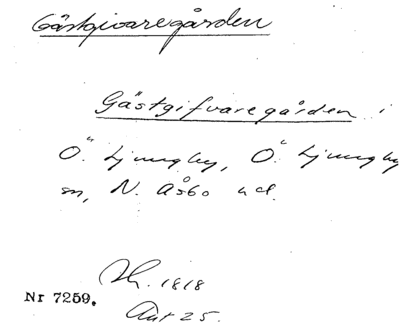 Gästgivaregården
Gästgifvaregården i
Ö. Ljungby, Ö. Ljungby
sn, N. Åsbo hd.
1818
Nr 7259.
Akt 25.